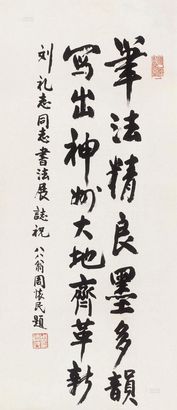 筆法精良墨多韻
寫出神州大地齊革新
刘礼志同志書法展誌祝
八八翁周懷民題